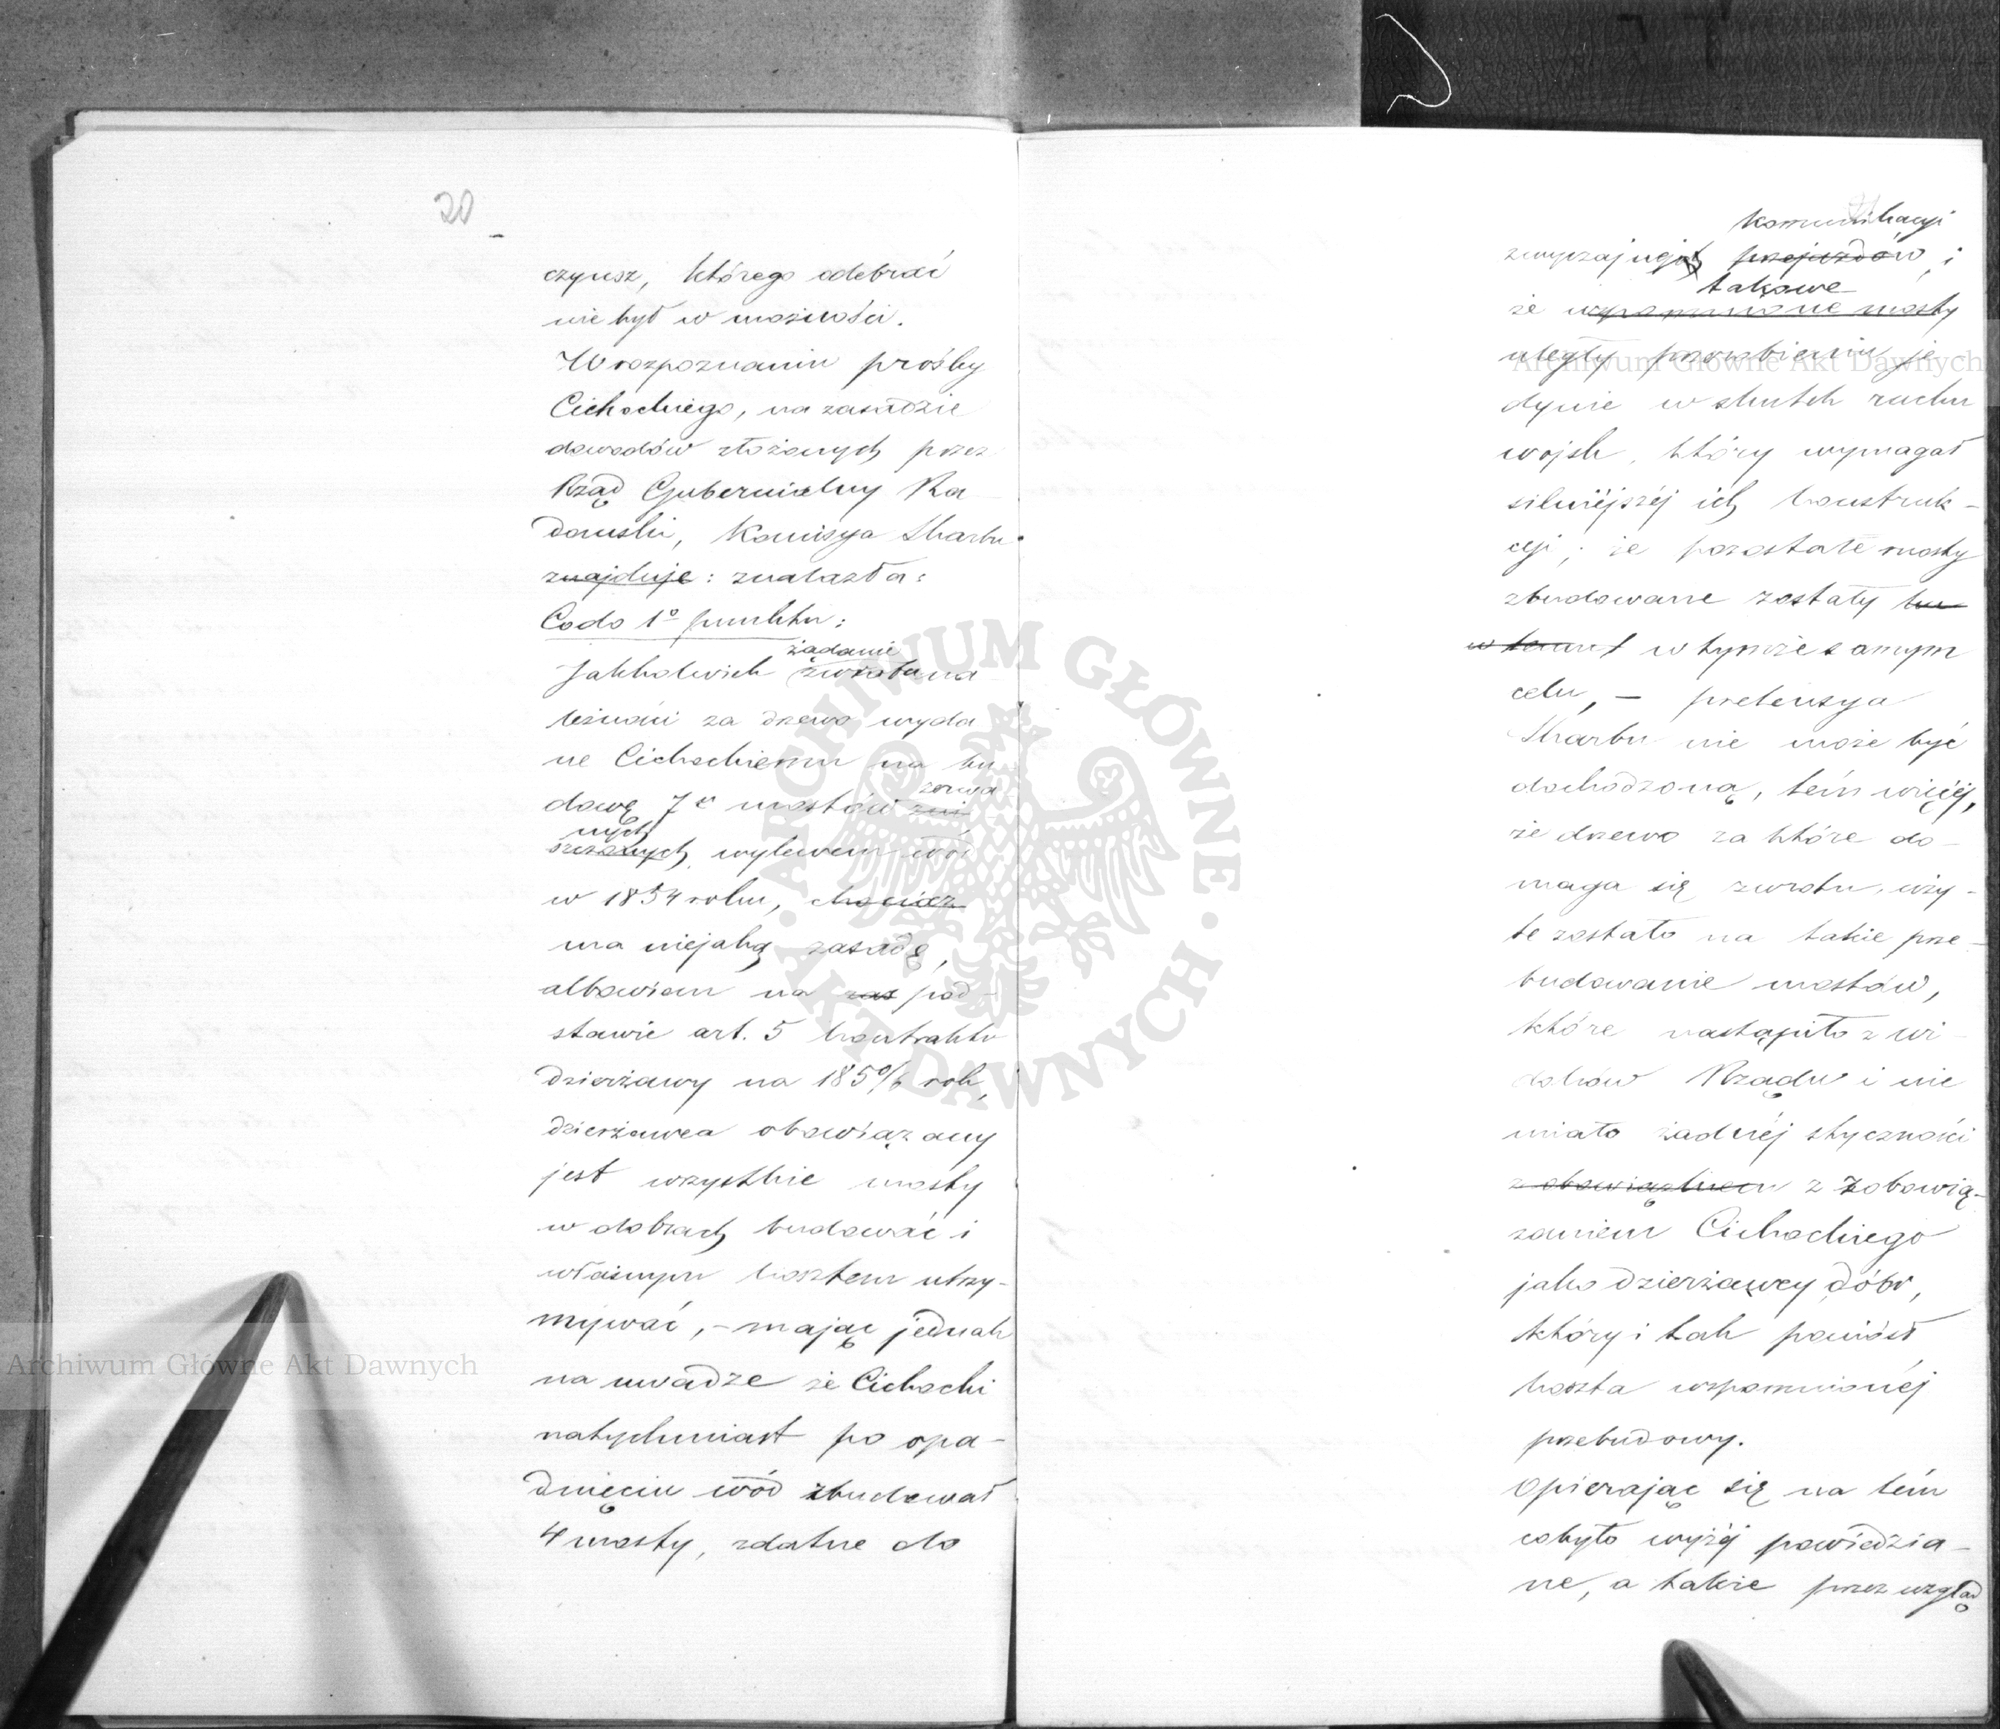 20
czynsz, którego odebrać
nie był w możności.
W rozpoznaniu prośby
Cichockiego, na zasadzie
dowodów złożonych przez
Rząd Gubernialny Ra
domski, Komisya Skarbu
znajduje: znalazła:
Co do 1º punktu:
żądanie
Jakkolwiek zwrotu na
leżności za drzewo wyda
ne Cichockiemu na bu
zerwa
dowę 7u mostów zni
nych
szczonych wylewem wód
w 1854 roku, chociaż
ma niejaką zasadę,
albowiem na zas pod-
stawie art. 5 kontraktu
dzierżawy na 1850/6 rok,
dzierżawca obowiązany
jest wszystkie mosty
w dobrach budować i
własnym kosztem utrzy-
mywać, – mając jednak
na uwadze że Cichocki
natychmiast po opa-
dnięciu wód zbudował
4 mosty, zdatne do
Komunikacyi
zwyczajnej przejazdów, i
takowe
że wspomnione mosty
uległy przerobieniu je-
dynie w skutek ruchu
wojsk, który wymagał
silniéjszéj ich konstruk-
cyi; że pozostałe mosty
zbudowane zostały
w tymże samym
celu, – pretensya
Skarbu nie może być
dochodzoną, tém więcéj,
że drzewo za które do-
maga się zwrotu, uży-
te zostało na takie prze-
budowanie mostów,
które nastąpiło z wi-
doków Rządu i nie
miało żadnéj styczności
z obowiązkiem z zobowią-
zaniem Cichockiego
jako dzierżawcy dóbr,
który i tak poniósł
koszta wspomnionéj
przebudowy.
Opierając się na tém
co było wyżéj powiedzia-
ne, a także przez wzgląd
ARCHIWUM GŁÓWNE AKT DAWNYCH
Archiwum Główne Akt Dawnych
Archiwum Główne Akt Dawnych